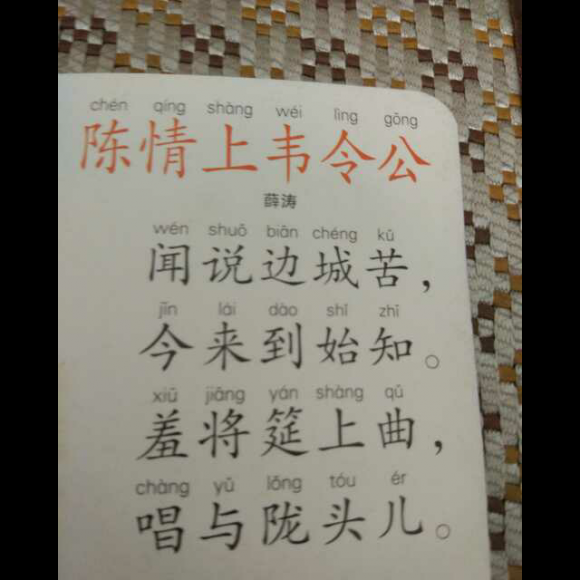 chén qíng shàng wéi lìng gōng
陈情上韦令公
薛涛
wén shuō biān chéng kǔ
闻说边城苦，
jīn lái dào shǐ zhī
今来到始知。
xiū jiāng yán shàng qǔ
羞将筵上曲，
chàng yǔ lǒng tóu ér
唱与陇头儿。